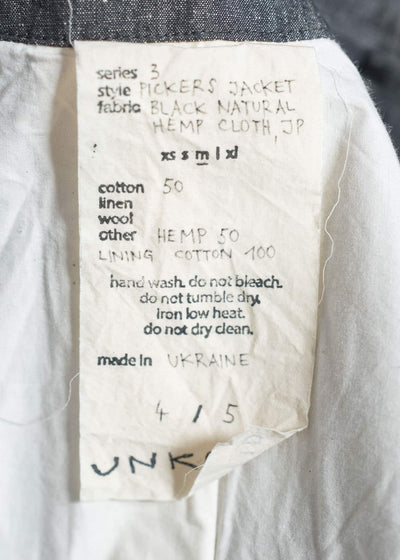 series 3
style PICKERS JACKET
fabric BLACK NATURAL
HEMP CLOTH, JP
xs s m l xl
cotton 50
linen
wool
other HEMP 50
LINING COTTON 100
hand wash. do not bleach.
do not tumble dry.
iron low heat.
do not dry clean.
made in UKRAINE
4 / 5
UNK